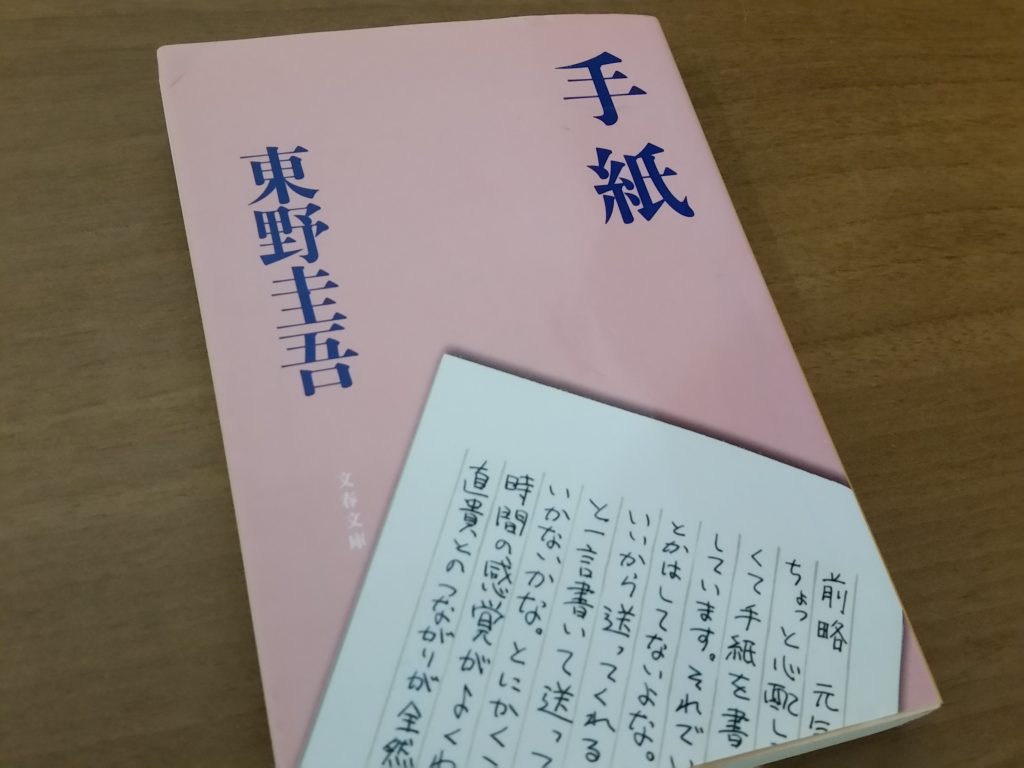 手紙
東野圭吾
文春文庫
前略 元
ちょっと心配し
くて手紙を書
しています。それで
とかはしてないよな。
いいから送ってくれる
と一言書いて送って
いかないかな。とにかくこ
時間の感覚がよくわ
直貴とのつながりが全然